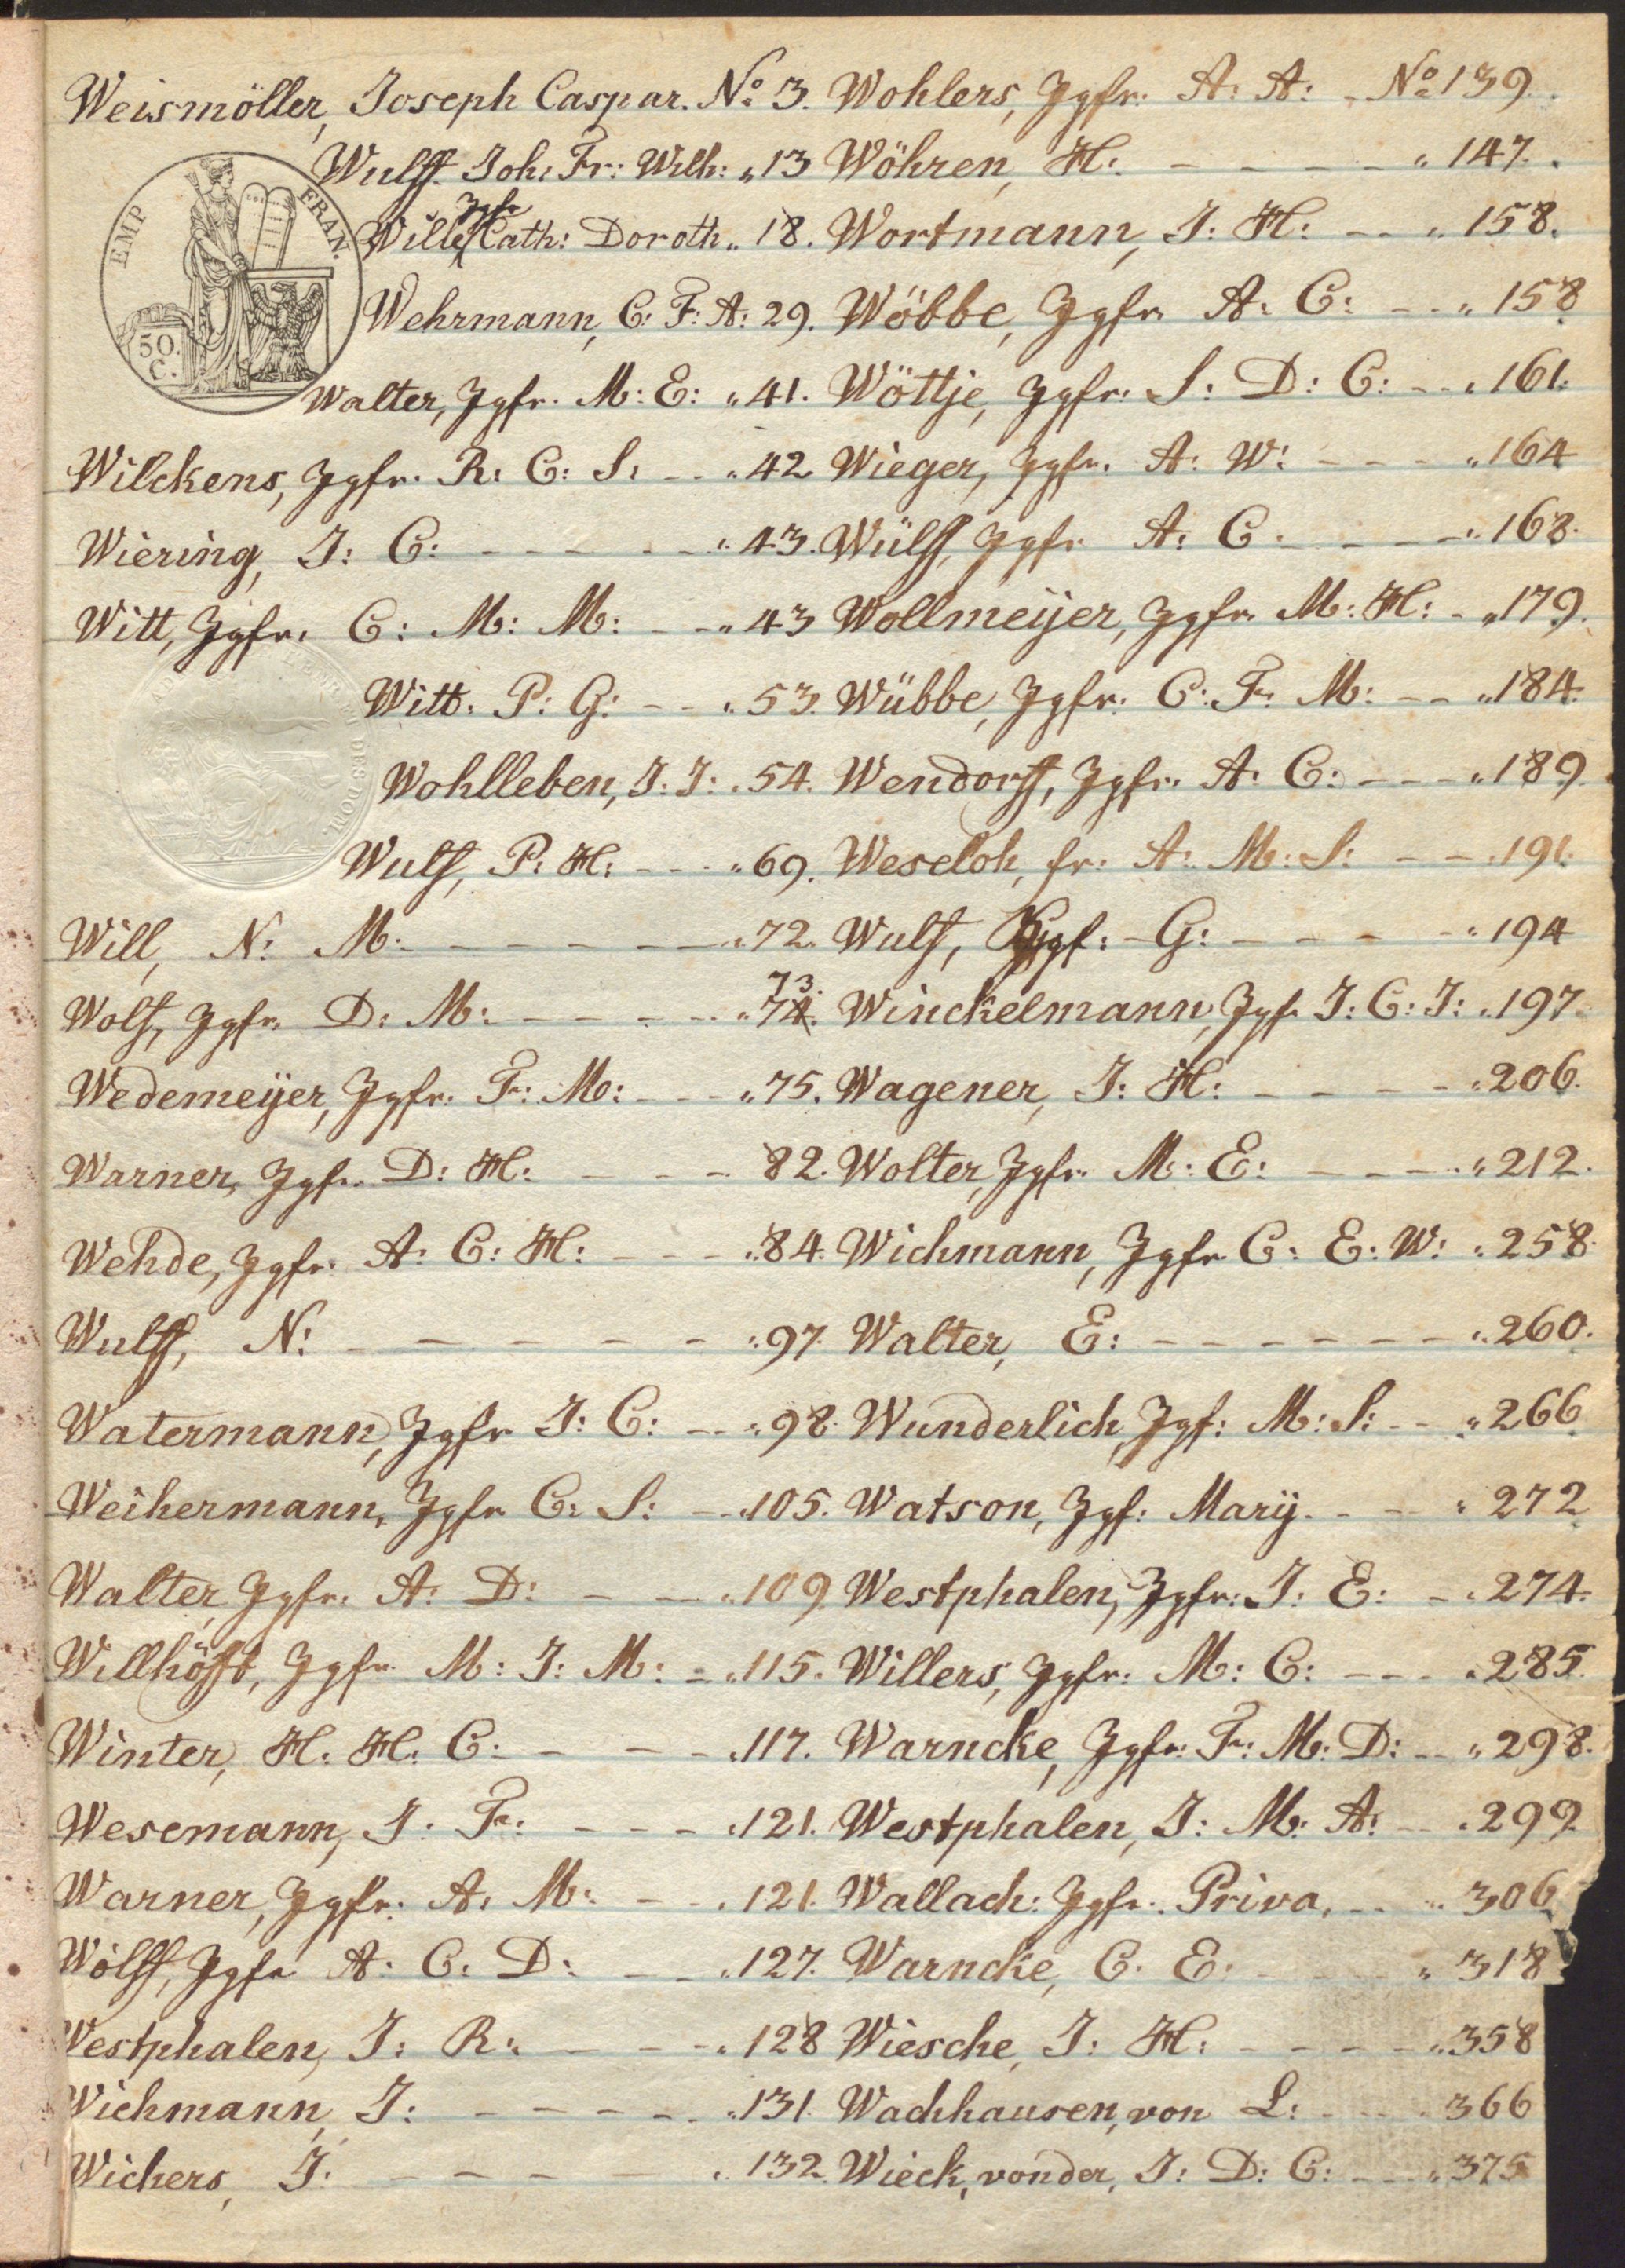 Weismöller, Joseph Caspar. No 3.
Wulff. Joh: Fr: Wilh: „ 13
Jgfr
Wille, Cath: Doroth. „ 18.
EMP FRAN.
50. C.
Wehrmann, C: F: A: 29.
Walter, Jgfr. M: E: „ 41.
Wilckens, Jgfr. R: C: S: - - „ 42
Wiering, J: C: - - - - - „ 43.
Witt, Jgfr. C: M: M: - - „ 43
Witt. P: G: - - „ 53.
Wohlleben, J: J: „ 54.
Wulf, P: H: - - - „ 69.
Will, N: M: - - - - - „ 72.
73.
Wolf, Jgfr. D: M: - - - - „ 74.
Wedemeÿer, Jgfr. Fr: M: - - - „ 75.
Warner, Jgfr. D: H: - - - 82.
Wehde, Jgfr. A: C: H: - - - „ 84.
Wulff, N: - - - - - - „ 97.
Watermann, Jgfr J: C: - - „ 98.
Weihermann, Jgfr C: S: - - „ 105.
Walter, Jgfr. A: D: - - „ 109.
Willhöft, Jgfr. M: J: M: - „ 115.
Winter, H: H: C: - - - „ 117.
Wesemann, J: Fr: - - - „ 121.
Warner, Jgfr. A: M: - - „ 121.
Wölff, Jgfr A: C: D: - - „ 127.
Westphalen, J: R: - - - „ 128
Wichmann, J: - - - - - „ 131.
Wichers, J: - - - „ 132.
Wohlers, Jgfr. A: A: No 139.
Wöhren, H: - - - - - „ 147.
Wortmann, J: H: - - „ 158.
Wöbbe, Jgfr. A: C: - - „ 158.
Wöttje, Jgfr. S: D: C: - - „ 161.
Wieger, Jgfr. A: W: - - - „ 164
Wülf, Jgfr A: C. - - - „ 168.
Wollmeÿer, Jgfr. M: H: - „ 179.
Wübbe, Jgfr. C: Fr: M: - - „ 184.
Wendorf, Jgfr. A: C: - - - „ 189.
Weseloh, fr. A: M: S: - - „ 191.
Wulf, Jgf: - G: - - - - „ 194
Winckelmann, Jgfr J: C: J: „ 197.
Wagener, J: H: - - - - „ 206.
Wolter, Jgfr. M: E: - - - „ 212.
Wichmann, Jgfr C: E: W: „ 258.
Walter, E: - - - - - - „ 260.
Wunderlich, Jgf: M: S: - - „ 266.
Watson, Jgf: Marÿ. - - - „ 272
Westphalen, Jgfr: J: E: - „ 274.
Willers, Jgfr: M: C: - - - „ 285.
Warncke, Jgfr: Fr: M: D: - - „ 298.
Westphalen, J: M: A: - - „ 299.
Wallach: Jgfr: Priva, - - „ 306.
Warncke, C. E. - - - „ 318
Wiesche, J: H: - - - - „ 358
Wachhausen, von L: - - - 366
Wieck, vonder, J: D: C: - - „ 375